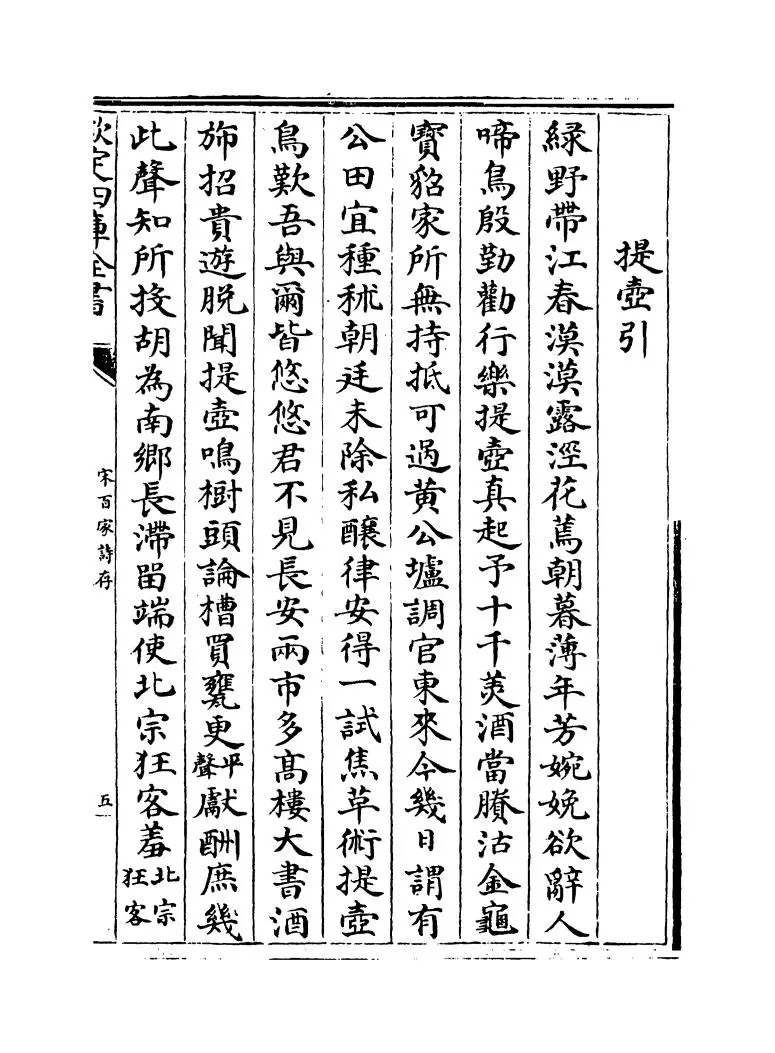 提壺引
緑野帶江春漠漠露溼花蔫朝暮薄年芳婉娩欲辭人
啼鳥殷勤勸行樂提壺真起予十千美酒當賸沽金龜
寶貂家所無持抵可過黄公壚調官東來今幾日謂有
公田宜種秫朝廷未除私釀律安得一試焦革術提壺
鳥歎吾與爾皆悠悠君不見長安兩市多髙樓大書酒
斾招貴遊脱聞提壺鳴樹頭論槽買甕更平聲獻酬庶幾
此聲知所投胡為南鄉長滯留端使北宗狂客羞北宗狂客
欽定四庫全書
宋百家詩存
五